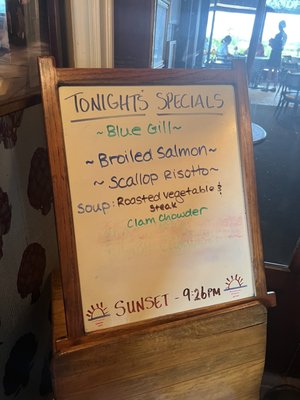 TONIGHT'S SPECIALS
~ Blue Gill ~
~ Broiled Salmon ~
~ Scallop Risotto ~
Soup: Roasted Vegetable &
Steak
Clam Chowder
SUNSET - 9:26PM